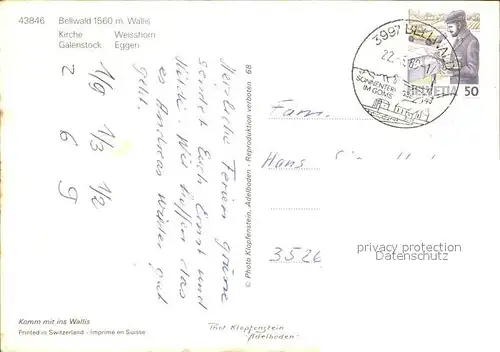 43846
Bellwald 1560 m. Wallis
Kirche Weisshorn
Galenstock Eggen
1/9 1/3 1/2
2 6 9
Herzliche Ferien grüsse
sendet Euch Ernst und
Heidi. Wir hoffen das
es Andreas wieder gut
geht.
© Photo Klopfenstein, Adelboden - Reproduktion verboten 68
3997 BELLWALD
22. 82
SONNENTER
IM GOMS
HELVETIA 50
Fam.
Hans
3526
privacy protection
Datenschutz
Komm mit ins Wallis
Printed in Switzerland - Imprimé en Suisse
Thor Klopfenstein
"Adelboden"